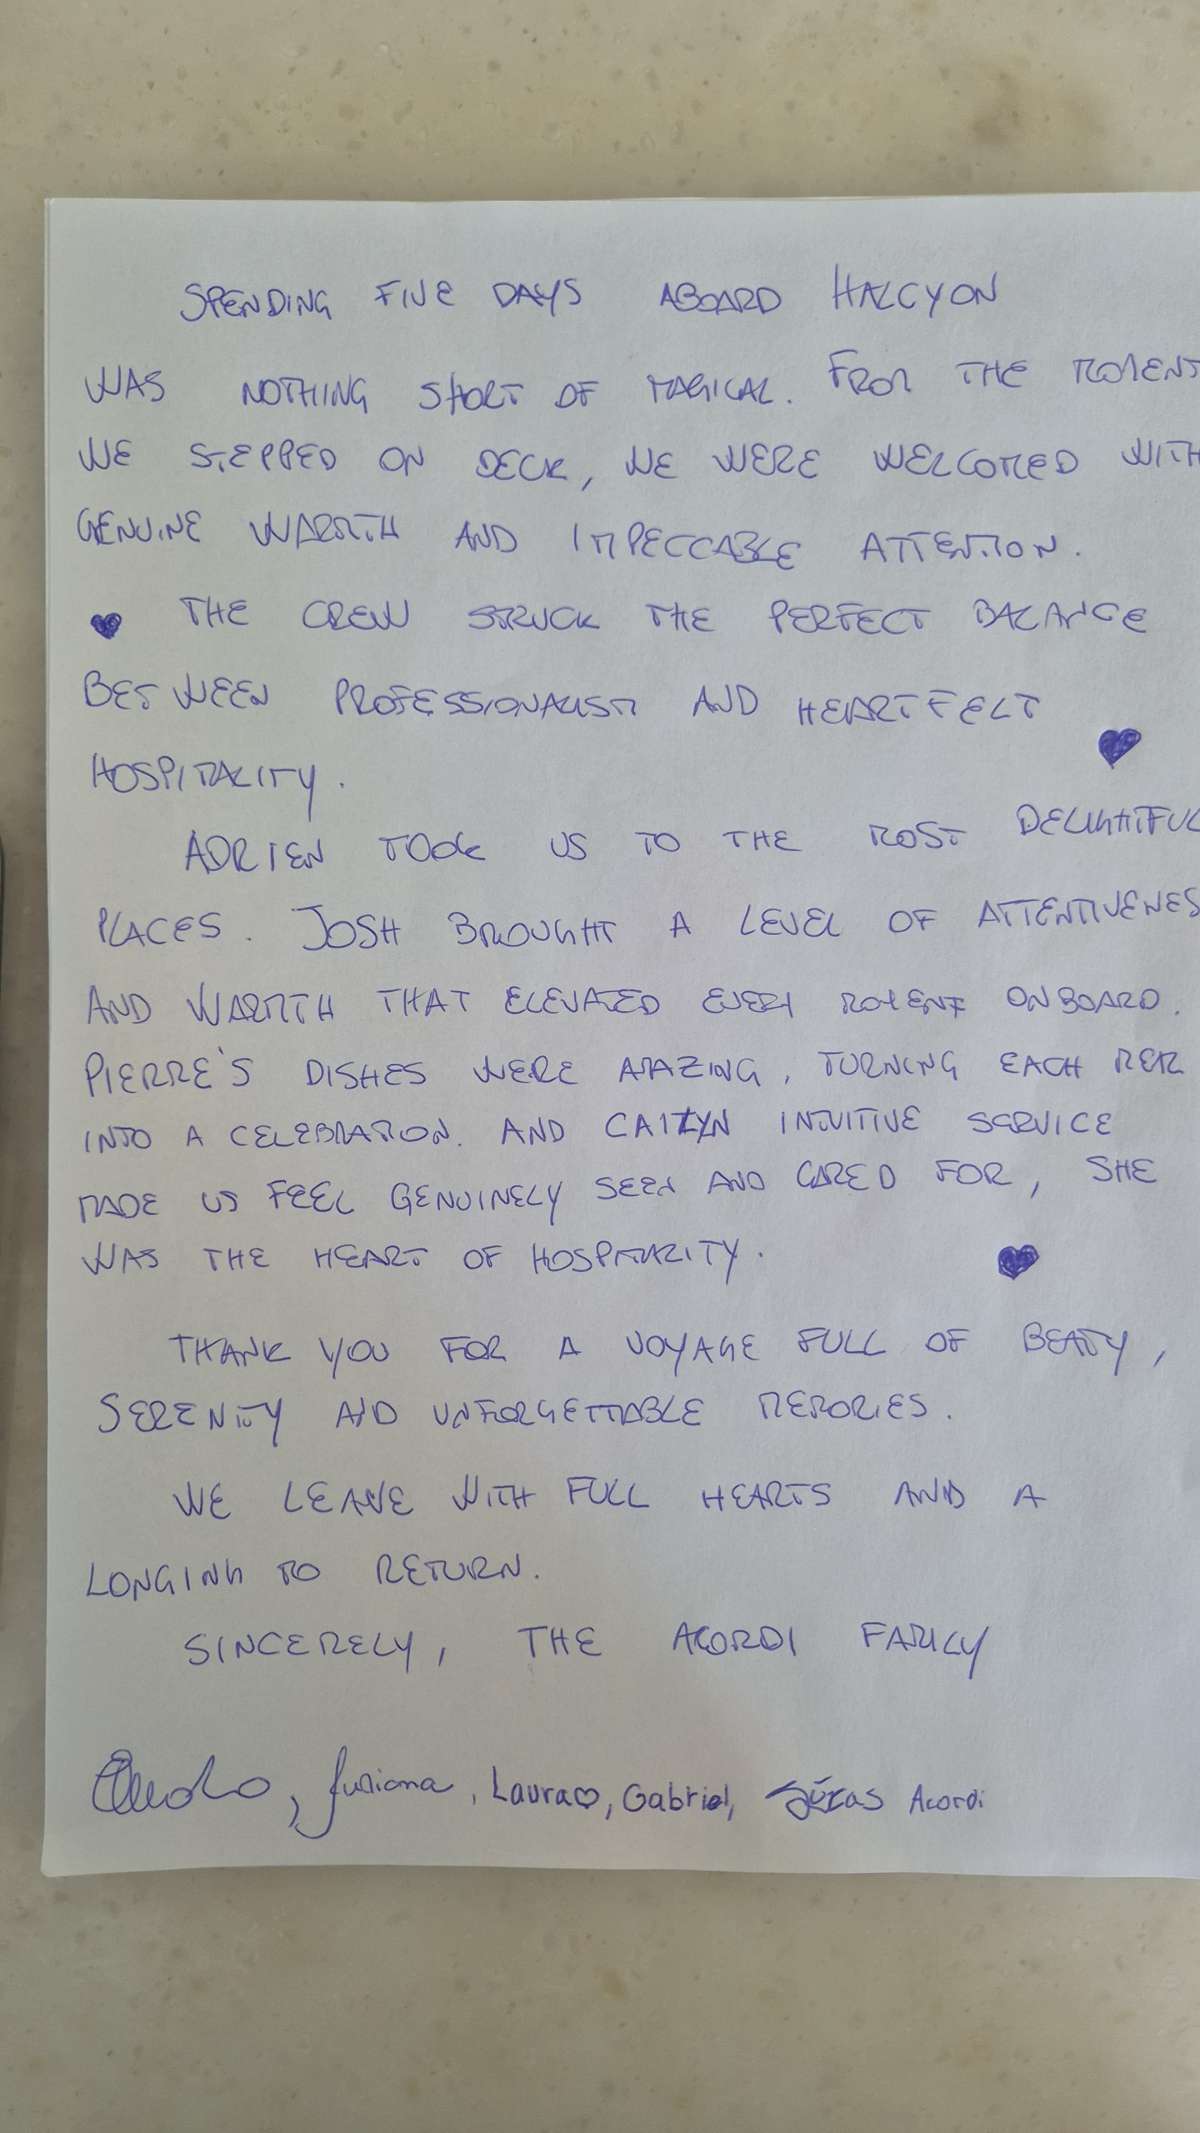 SPENDING FIVE DAYS ABOARD HALCYON
WAS NOTHING SHORT OF MAGICAL. FROM THE MOMENT
WE STEPPED ON DECK, WE WERE WELCOMED WITH
GENUINE WARMTH AND IMPECCABLE ATTENTION.
THE CREW STRUCK THE PERFECT BALANCE
BETWEEN PROFESSIONALISM AND HEARTFELT
HOSPITALITY.
ADRIEN TOOK US TO THE MOST DELIGHTFUL
PLACES. JOSH BROUGHT A LEVEL OF ATTENTIVENES
AND WARMTH THAT ELEVATED EVERY MOMENT ONBOARD.
PIERRE'S DISHES WERE AMAZING, TURNING EACH
INTO A CELEBRATION. AND CAITLYN INTUITIVE SERVICE
MADE US FEEL GENUINELY SEEN AND CARED FOR, SHE
WAS THE HEART OF HOSPITALITY.
THANK YOU FOR A VOYAGE FULL OF BEATY,
SERENITY AND UNFORGETTABLE MEMORIES.
WE LEAVE WITH FULL HEARTS AND A
LONGING TO RETURN.
SINCERELY, THE ACORDI FAMILY
Laura♡, Gabriel, Acordi